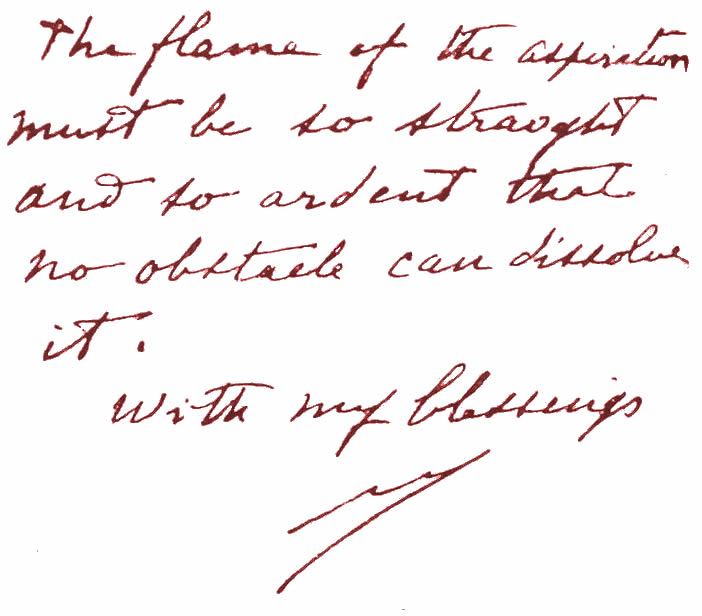 The flame of the aspiration
must be so straight
and so ardent that
no obstacle can dissolve
it.
With my blessings